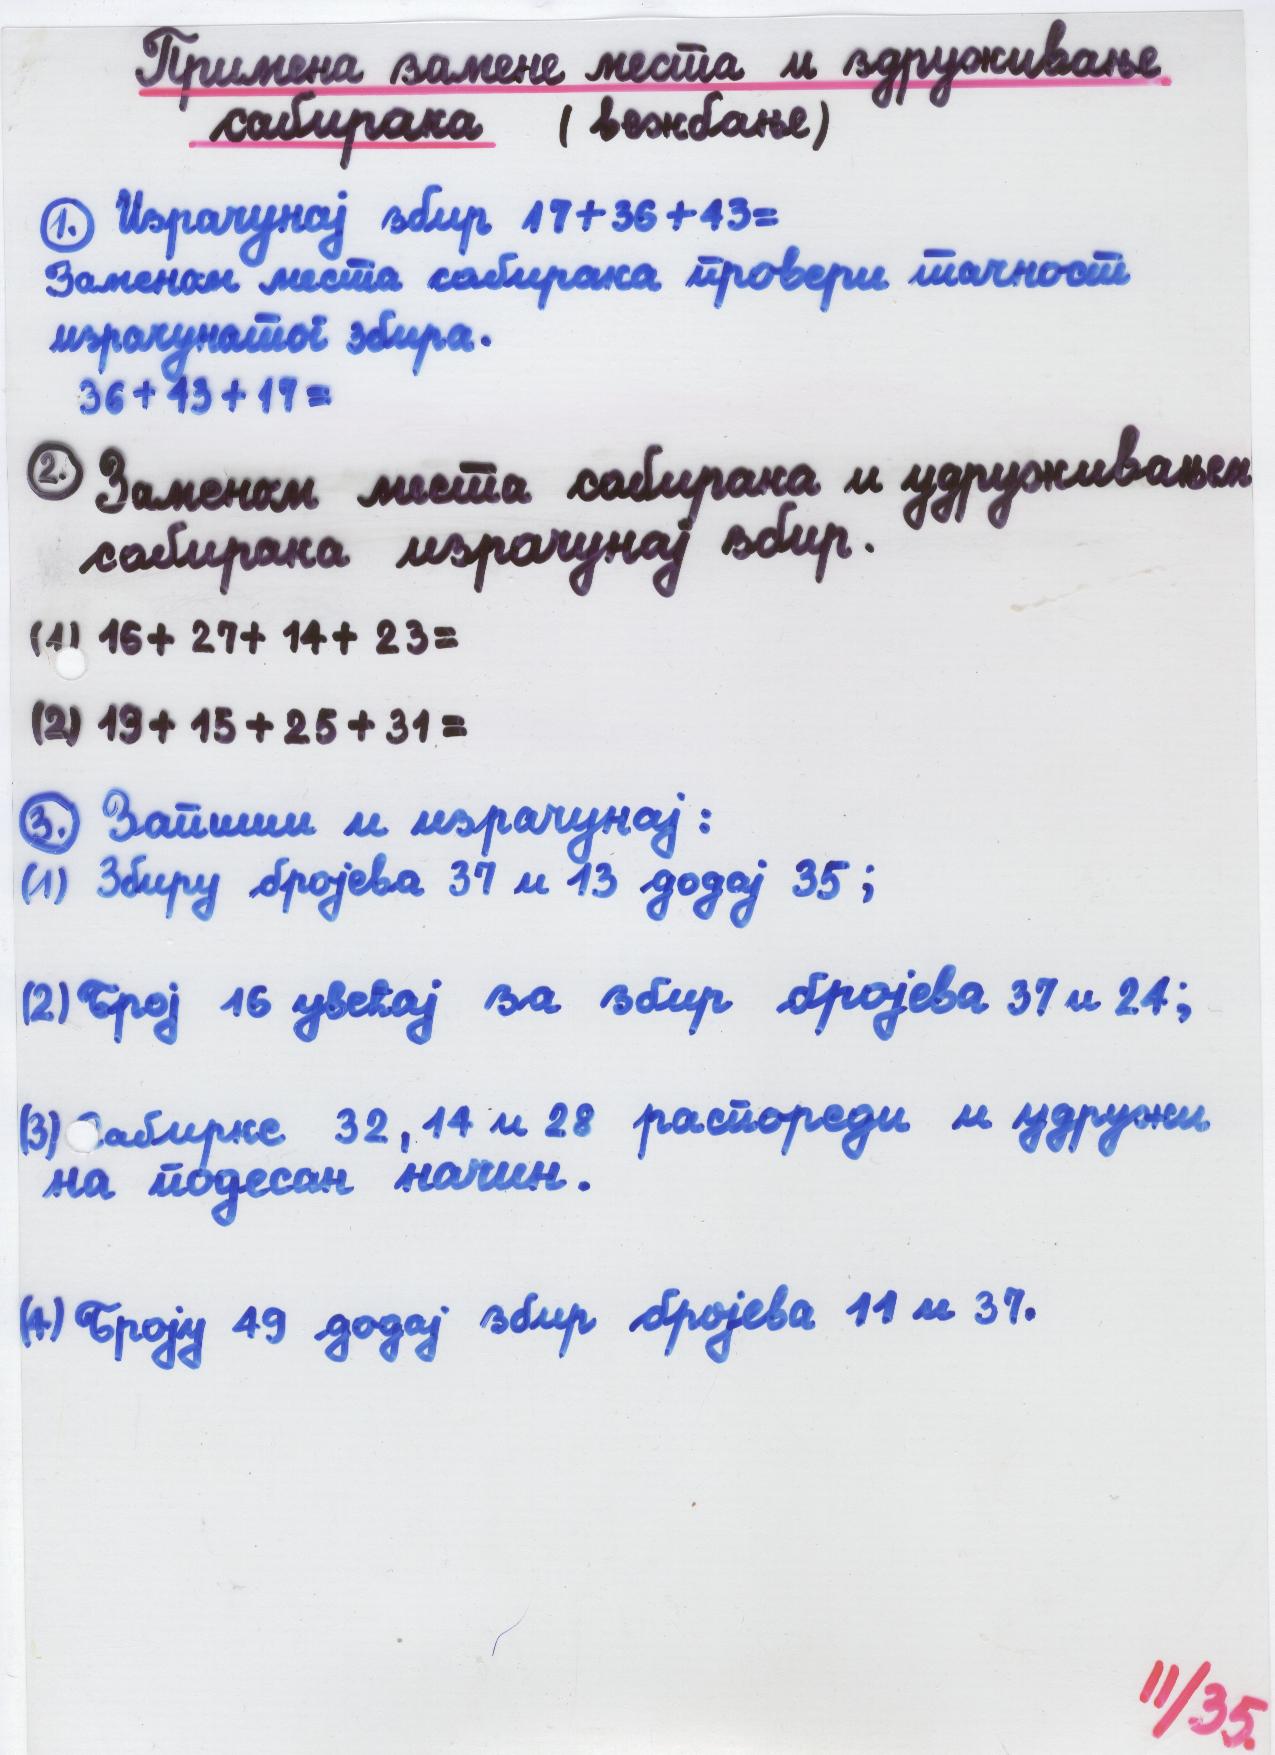 Примена замене места и здруживање
сабирака (вежбање)
1. Израчунај збир 17+36+43=
Заменом места сабирака провери тачност
израчунатог збира.
36+43+17=
2. Заменом места сабирака и удруживањем
сабирака израчунај збир.
(1) 16+ 27+ 14+ 23=
(2) 19+ 15+25+31=
3. Запиши и израчунај:
(1) Збиру бројева 37 и 13 додај 35;
(2) Број 16 увећај за збир бројева 37 и 24;
(3) Сабирке 32, 14 и 28 распореди и удружи
на подесан начин.
(4) Броју 49 додај збир бројева 11 и 37.
11/35.